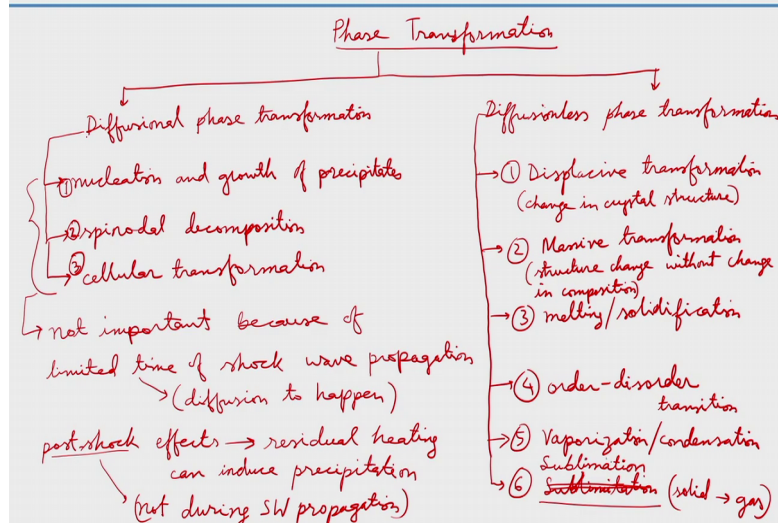 Phase Transformation
Diffusional phase transformation
① nucleation and growth of precipitates
② spinodal decomposition
③ cellular transformation
not important because of
limited time of shock wave propagation
(diffusion to happen)
post-shock effects → residual heating
can induce precipitation
(not during SW propagation)
Diffusionless phase transformation
① Displacive transformation
(change in crystal structure)
② Massive transformation
(structure change without change
in composition)
③ melting/solidification
④ order-disorder
transition
⑤ Vaporization/condensation
Sublimation
⑥ (solid → gas)